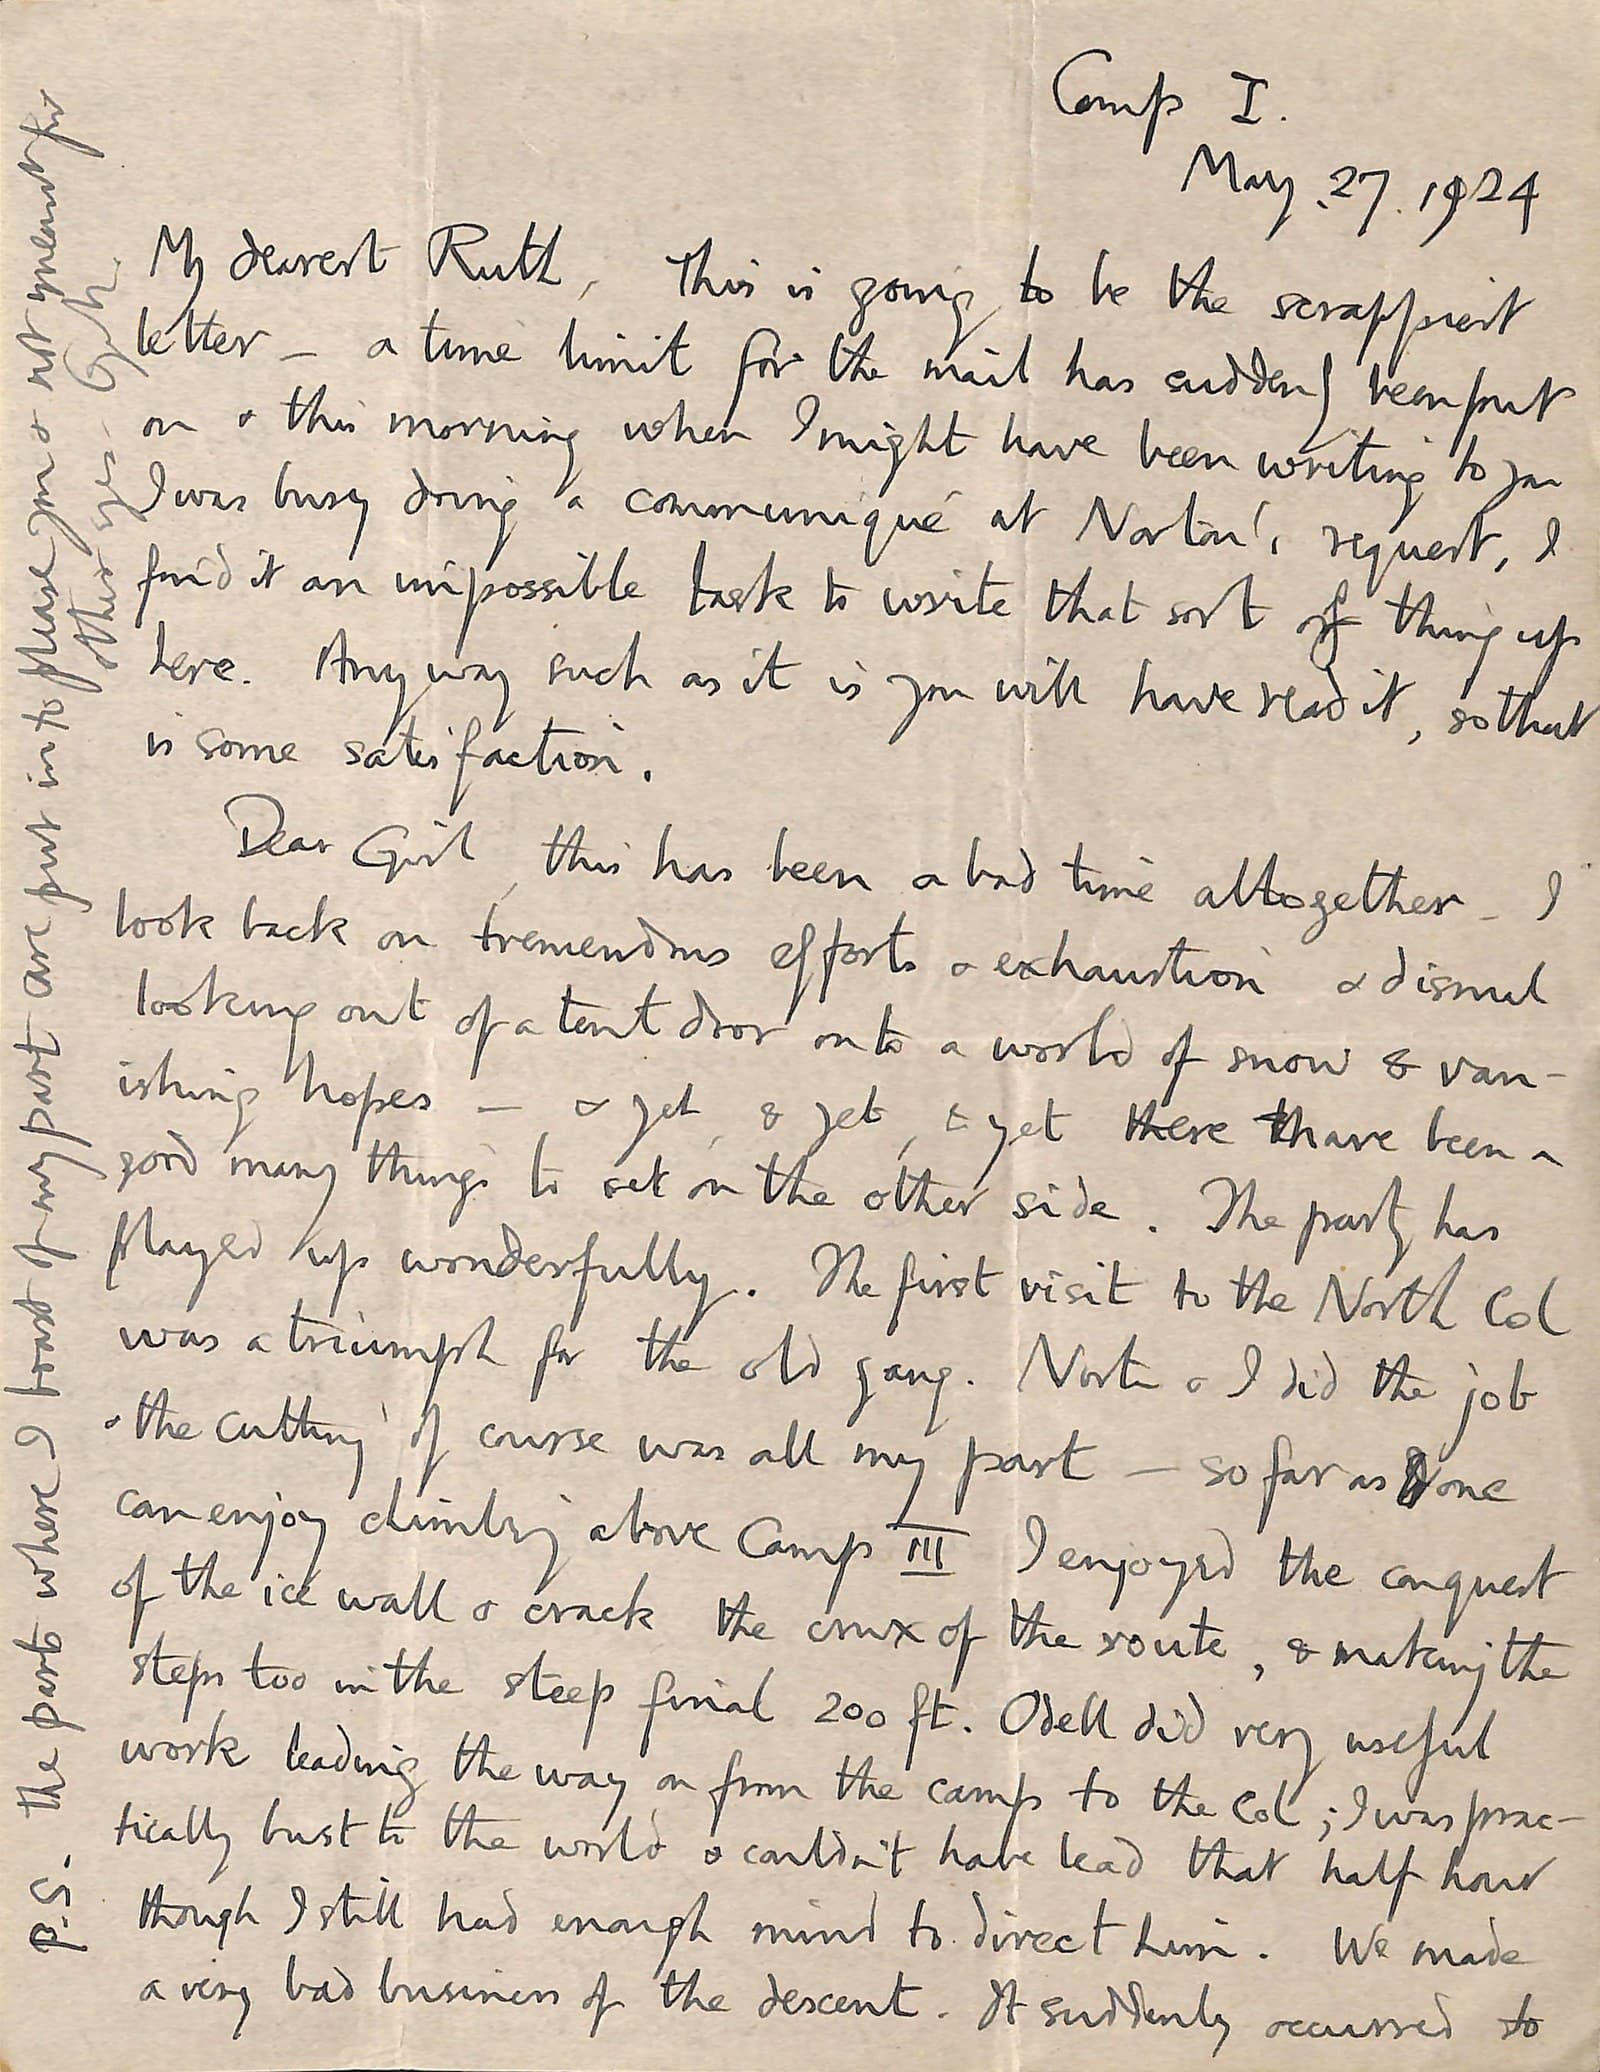 Camp I.
May. 27. 1924
My dearest Ruth, This is going to be the scrappiest
letter – a time limit for the mail has suddenly been put
on & this morning when I might have been writing to you
I was busy doing a communiqué at Norton's request, I
find it an impossible task to write that sort of thing up
here. Anyway such as it is you will have read it, so that
is some satisfaction.
Dear Girl, this has been a bad time altogether – I
look back on tremendous efforts & exhaustion & dismal
looking out of a tent door onto a world of snow & van-
ishing hopes – & yet, & yet, & yet there have been a
good many things to set on the other side. The party has
played up wonderfully. The first visit to the North Col
was a triumph for the old gang. Norton & I did the job
& the cutting of course was all my part – so far as one
can enjoy climbing above Camp III I enjoyed the conquest
of the ice wall & crack the crux of the route, & making the
steps too in the steep final 200 ft. Odell did very useful
work leading the way on from the camp to the Col; I was prac-
tically bust to the world & couldn't have lead that half hour
though I still had enough mind to direct him. We made
a very bad business of the descent. It suddenly occurred to
P.S. The parts where I boast of my part are put in to please you & not meant for
other eyes. G.M.